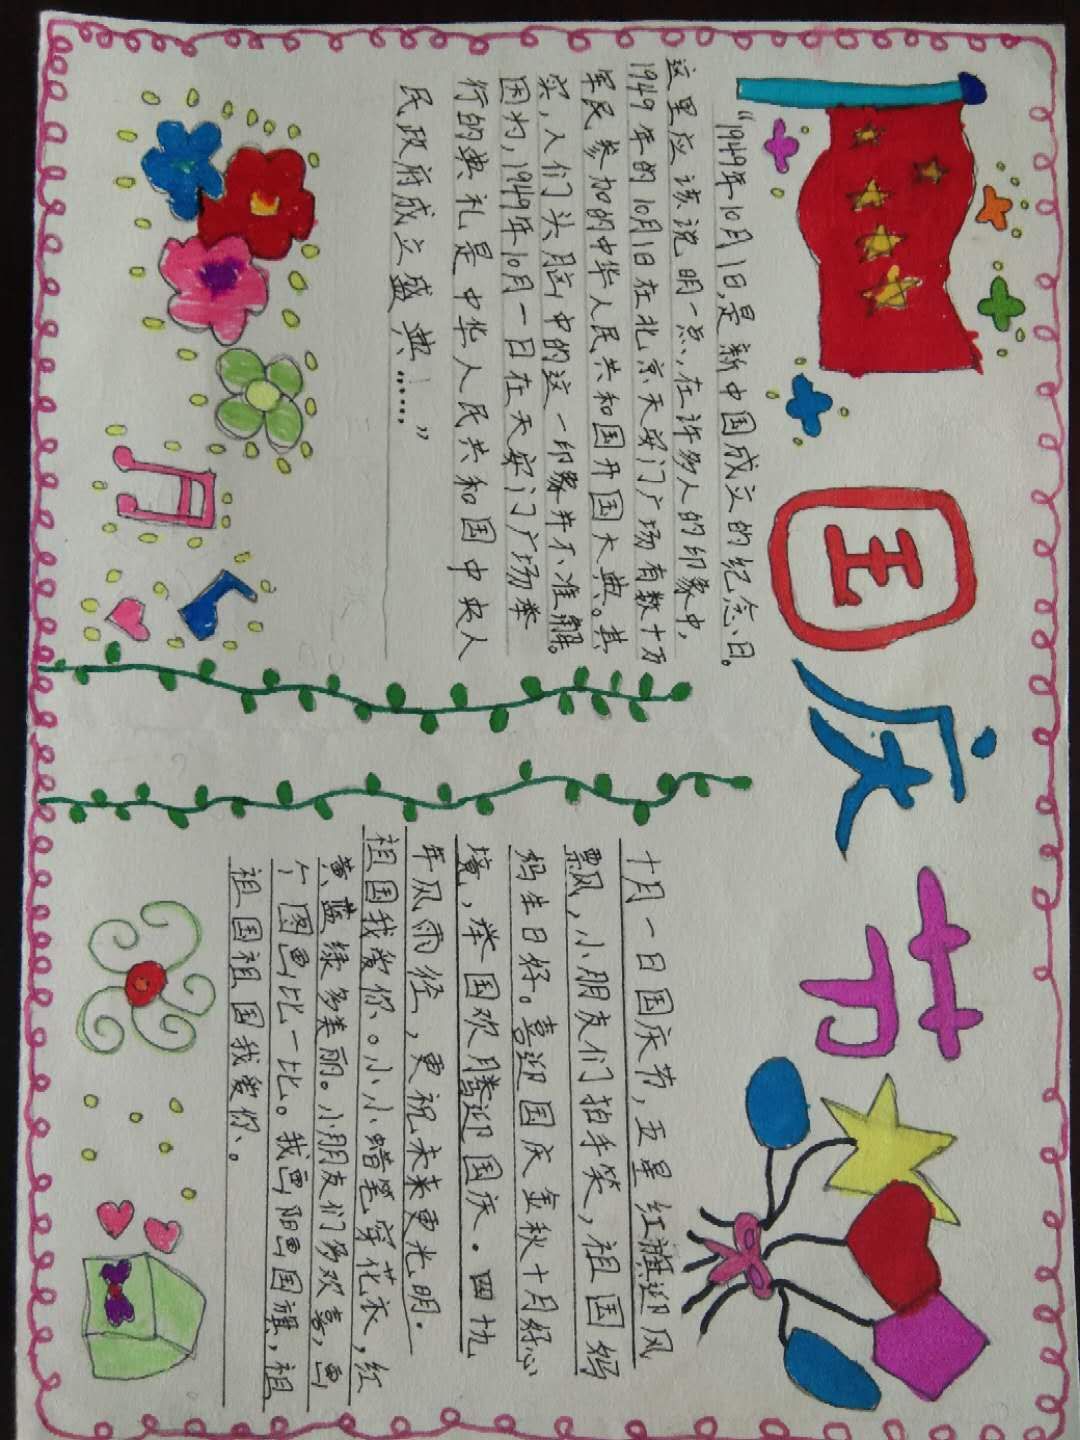 国庆节
“1949年10月1日,是新中国成立的纪念日。
这里应该说明一点,在许多人的印象中,
1949年的10月1日在北京天安门广场有数十万
军民参加的中华人民共和国开国大典。其
实,人们头脑中的这一印象并不准确。
因为,1949年10月一日在天安门广场举
行的典礼是中华人民共和国中央人
民政府成立盛典!……”
十月一日国庆节,五星红旗迎风
飘,小朋友们拍手笑,祖国妈
妈生日好。喜迎国庆金秋十月好心
境,举国欢腾迎国庆.四九
年风雨径,更祝未来更光明.
祖国我爱你。小小蜡笔穿花衣,红
黄蓝绿多美丽。小朋友们多欢喜,画
个图画比一比。我画阳画国旗,祖
祖国祖国我爱你、。